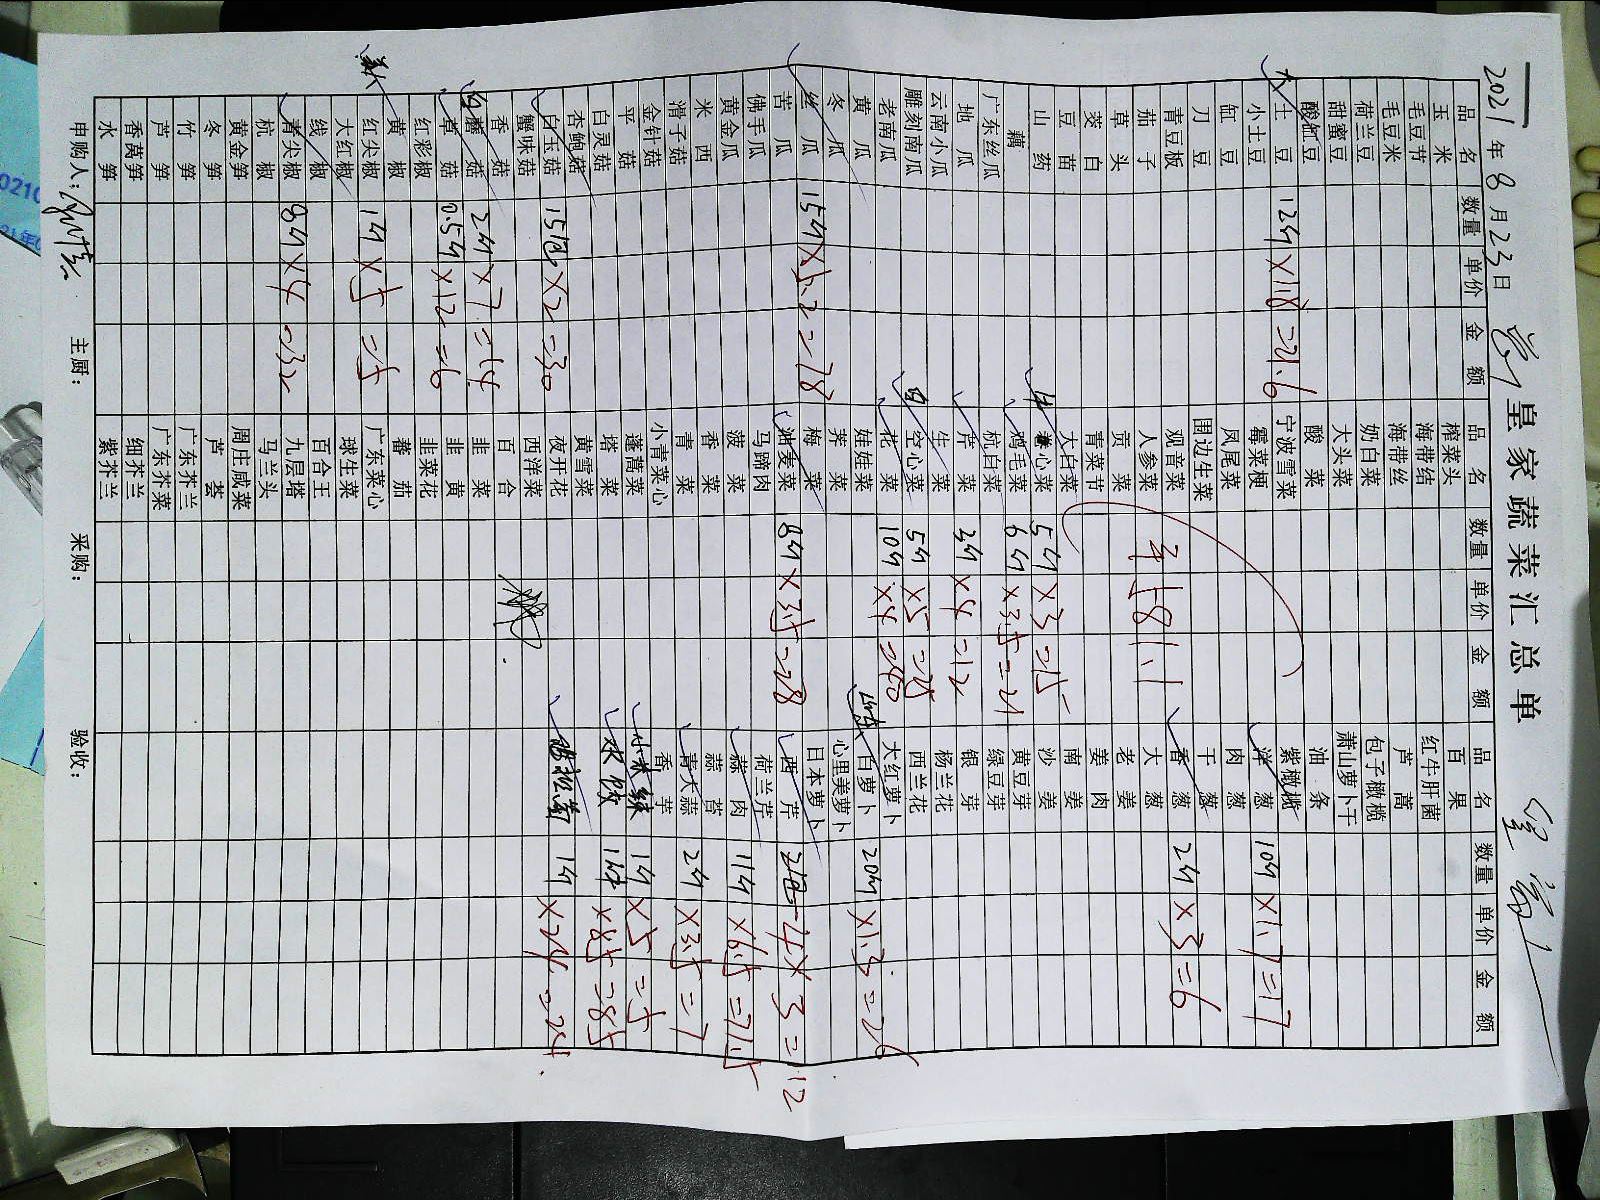 2021年8月23日 皇家蔬菜汇总单
品名 数量 单价 金额 品名 数量 单价 金额 品名 数量 单价 金额
玉米 榨菜头 百果
毛豆节 海带结 红牛肝菌
毛豆米 海带丝 芦蒿
荷兰豆 奶白菜 包子橄榄
甜蜜豆 大头菜 萧山萝卜干
酸缸豆 酸菜 油条
大土豆 12斤×1.8=21.6 宁波雪菜 紫橄榄
小土豆 霉菜梗 洋葱 10斤×1.7=17
缸豆 凤尾菜 肉葱
刀豆 围边生菜 干葱
青豆板 观音菜 香葱 2斤×3=6
茄子 人参菜 大葱
草头 贡菜 老姜
茭白 青菜节 姜肉
豆苗 大白菜 南姜
山药 心菜 5斤×3=15 沙姜
藕 鸡毛菜 6斤×3.5=21 黄豆芽
广东丝瓜 杭白菜 绿豆芽
地瓜 芹菜 3斤×4=12 银芽
云南小瓜 生菜 杨兰花
雕刻南瓜 空心菜 5斤×5=25 西兰花
老南瓜 花菜 10斤×4=40 大红萝卜
黄瓜 娃娃菜 白萝卜 20斤×1.3=26
冬瓜 荠菜 心里美萝卜
丝瓜 15斤×5.2=78 梅菜 日本萝卜
苦瓜 油麦菜 8斤×3.5=28 西芹 2包-4×3=12
佛手瓜 马蹄肉 荷兰芹
黄金瓜 菠菜 蒜肉 11斤×6.5=71.5
米西 香菜 蒜苔
滑子菇 青菜 青大蒜 2斤×3.5=7
金针菇 小青菜心 香芋
平菇 蓬蒿菜 小米辣 1斤×5=5
白灵菇 塔菜 1件×85=85
杏鲍菇 黄雪菜
白玉菇 15包×2=30 夜开花 1斤×24=24
蟹味菇 西洋菜
香菇 百合
白蘑菇 2斤×7=14 韭菜
草菇 0.5斤×12=6 韭黄
红彩椒 韭菜花
黄椒 番茄
红尖椒 1斤×5=5 广东菜心
大红椒 球生菜
线椒 百合王
青尖椒 8斤×4=32 九层塔
杭椒 马兰头
黄金笋 周庄咸菜
冬笋 芦荟
竹笋 广东芥兰
芦笋 广东芥菜
香莴笋 细芥兰
水笋 紫芥兰
申购人: 主厨: 采购: 验收: